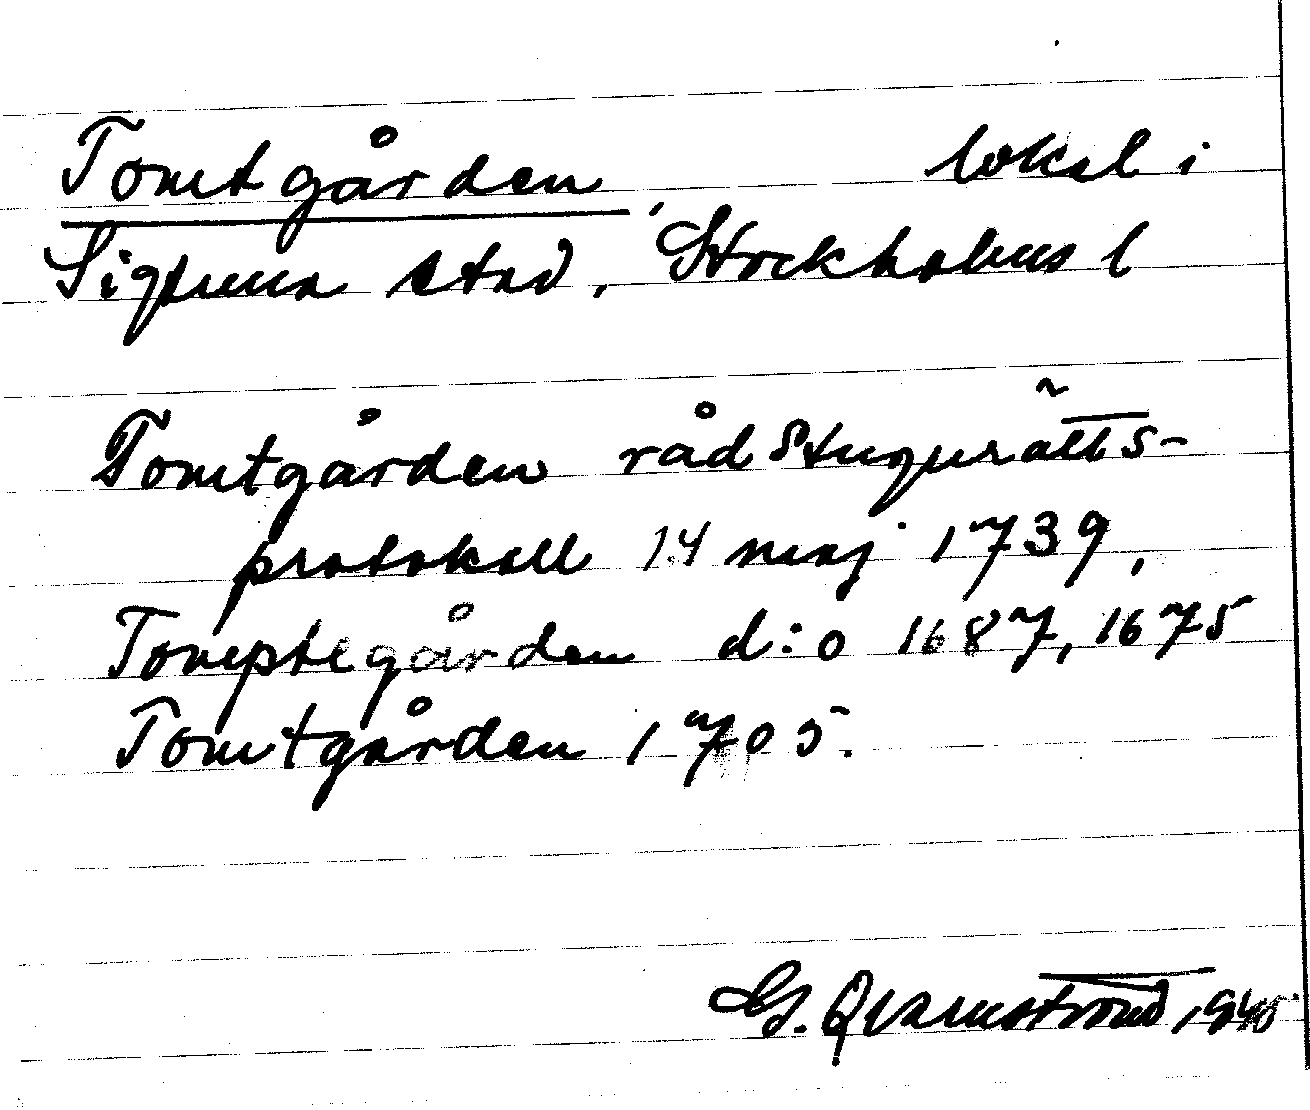 Tomtgården, lokal i
Sigtuna stad, Stockholms l
Tomtgården rådstugurätts-
protokoll 14 maj 1739,
Tomptegården d:o 1687, 1675
Tomtgården 1705.
G. Qvarnström 1940